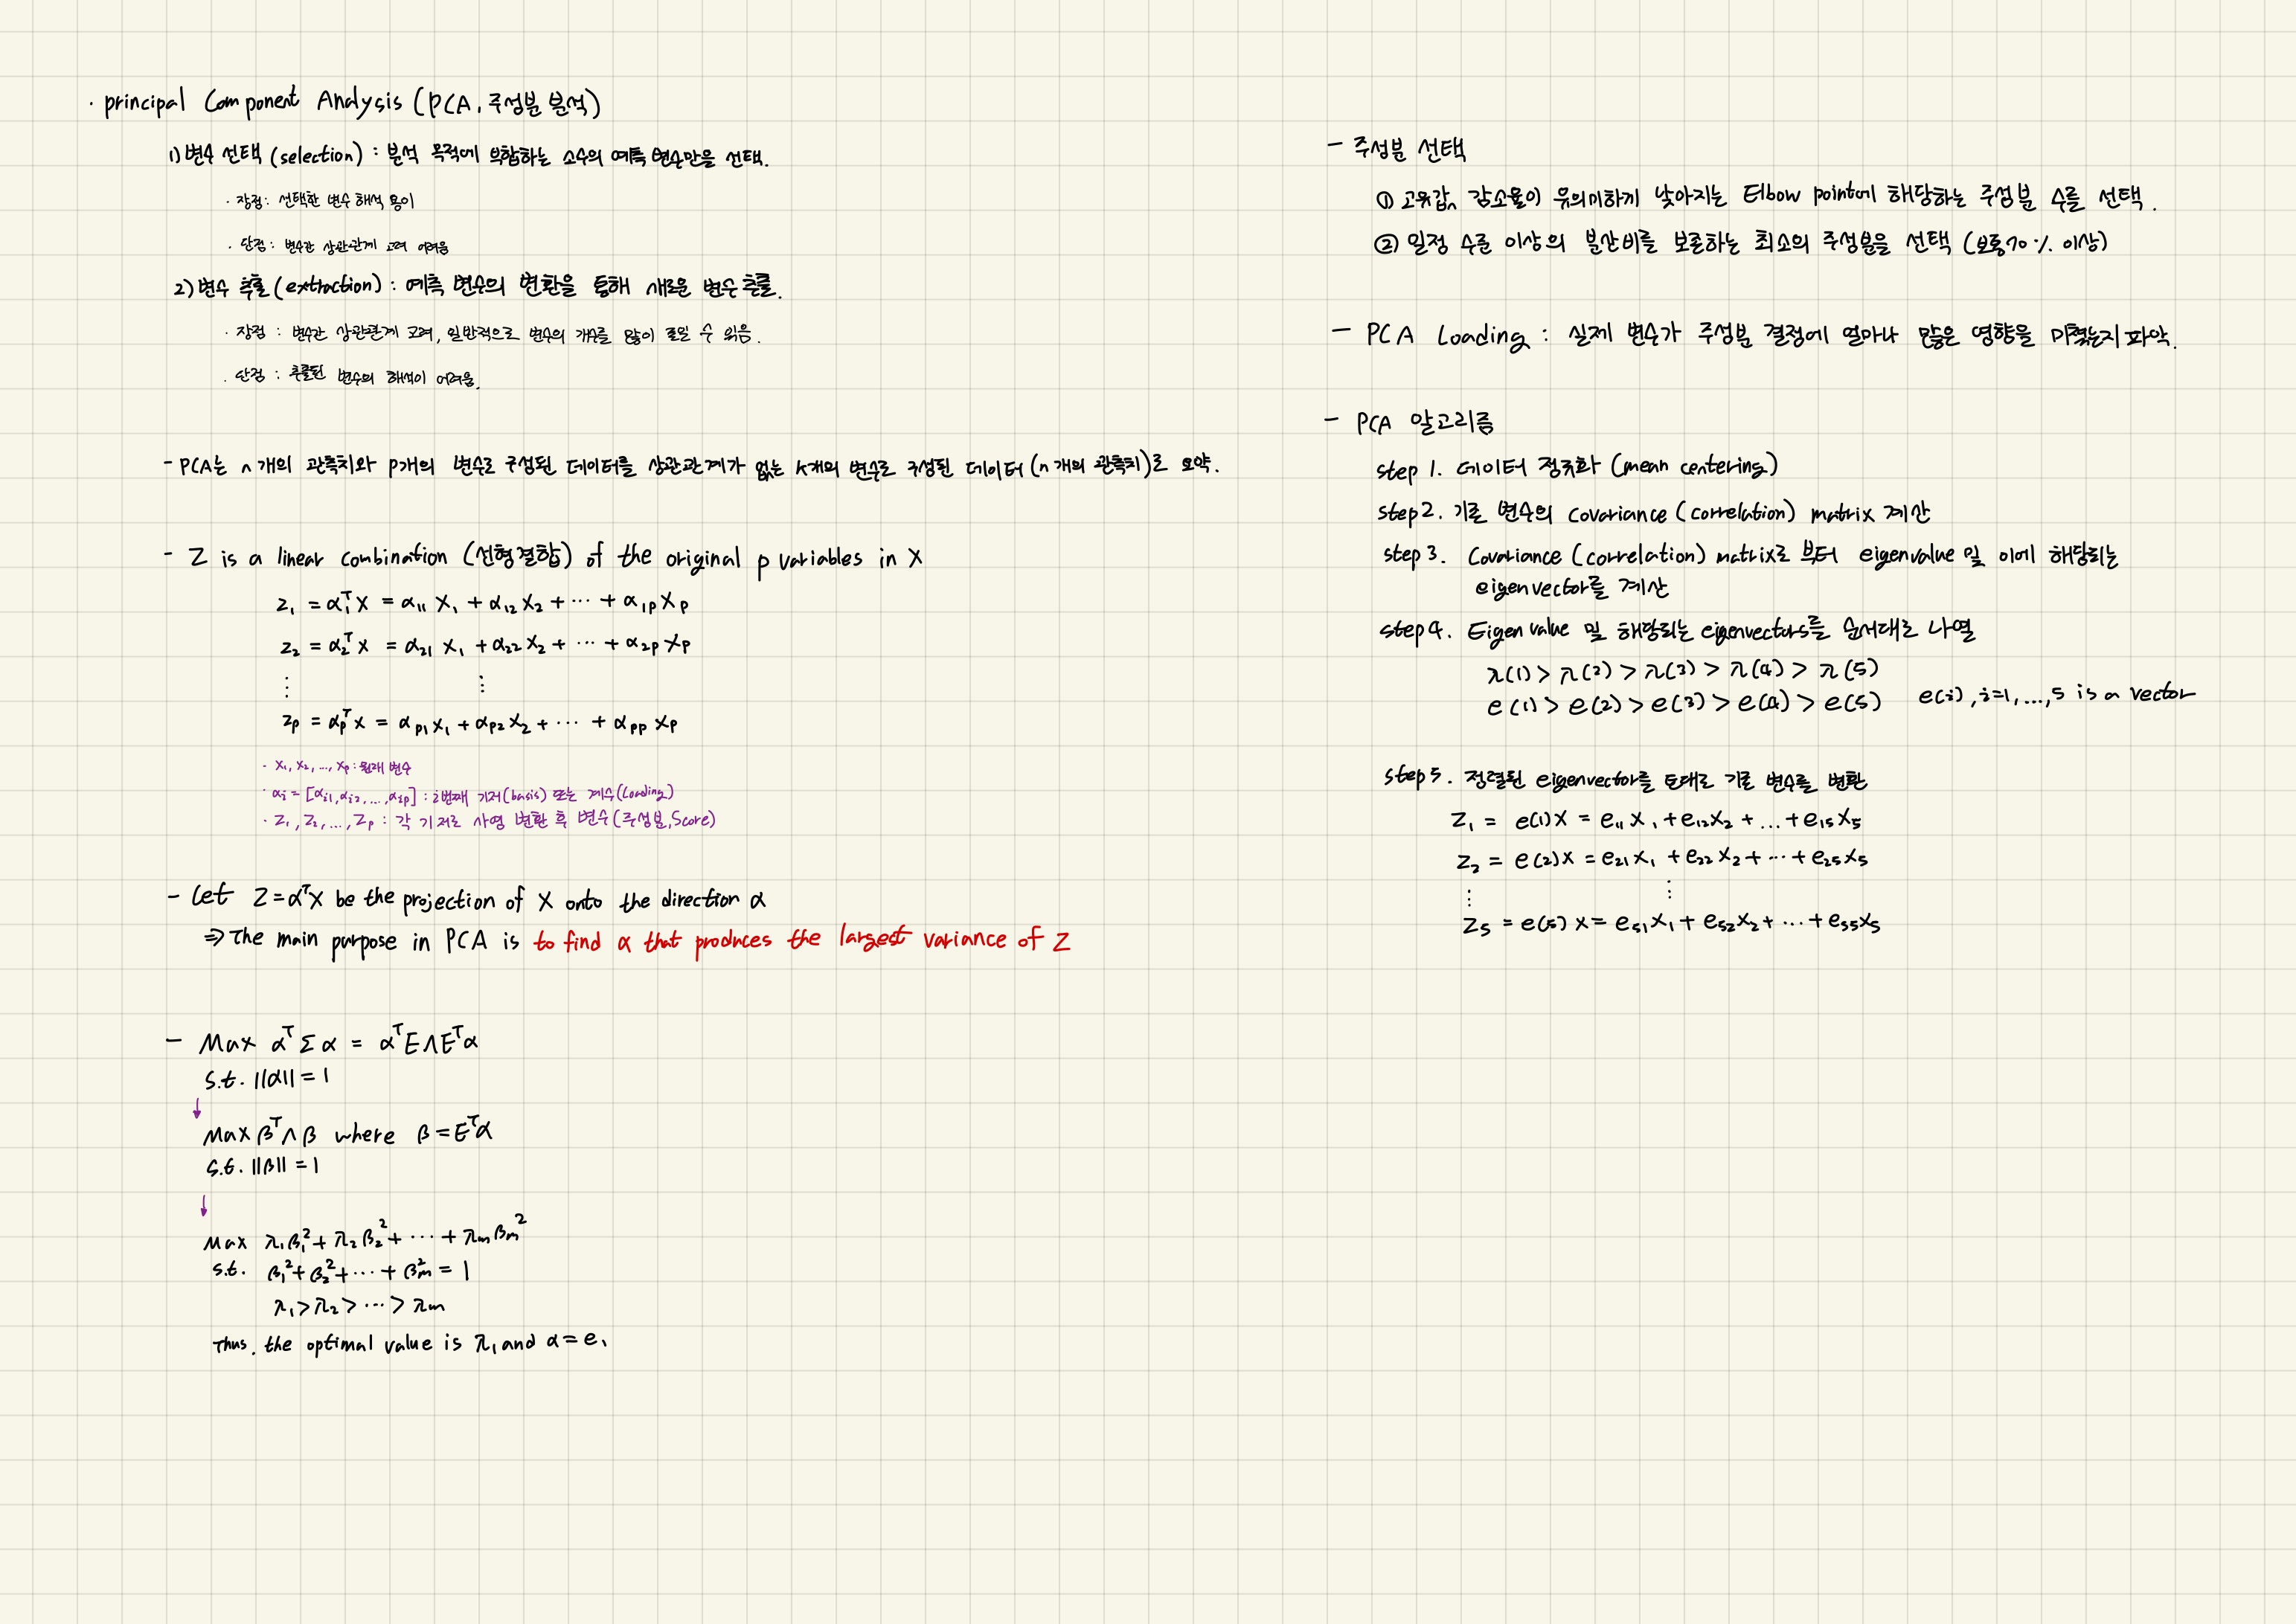 · principal Component Analysis (PCA, 주성분 분석)
1) 변수 선택 (selection) : 분석 목적에 부합하는 소수의 예측 변수만을 선택.
· 장점 : 선택한 변수 해석 용이
· 단점 : 변수간 상관관계 고려 어려움
2) 변수 추출 (extraction) : 예측 변수의 변환을 통해 새로운 변수 추출.
· 장점 : 변수간 상관관계 고려, 일반적으로 변수의 개수를 많이 줄일 수 있음.
· 단점 : 추출된 변수의 해석이 어려움.
- PCA는 n개의 관측치와 p개의 변수로 구성된 데이터를 상관관계가 없는 k개의 변수로 구성된 데이터 (n개의 관측치)로 요약.
- Z is a linear combination (선형결합) of the original p variables in X
z₁ = α₁ᵀX = α₁₁X₁ + α₁₂X₂ + ⋯ + α₁ₚXₚ
z₂ = α₂ᵀX = α₂₁X₁ + α₂₂X₂ + ⋯ + α₂ₚXₚ
⋮ ⋮
zₚ = αₚᵀX = αₚ₁X₁ + αₚ₂X₂ + ⋯ + αₚₚXₚ
· X₁, X₂, ..., Xₚ : 원래 변수
· αᵢ = [αᵢ₁, αᵢ₂, ..., αᵢₚ] : i번째 기저(basis) 또는 계수(Loading)
· Z₁, Z₂, ..., Zₚ : 각 기저로 사영 변환 후 변수(주성분, Score)
- Let Z = αᵀX be the projection of X onto the direction α
⇒ The main purpose in PCA is to find α that produces the largest variance of Z
- Max αᵀΣα = αᵀEΛEᵀα
s.t. ||α|| = 1
↓
Max βᵀΛβ where β = Eᵀα
s.t. ||β|| = 1
↓
Max λ₁β₁² + λ₂β₂² + ⋯ + λₘβₘ²
s.t. β₁² + β₂² + ⋯ + βₘ² = 1
λ₁ > λ₂ > ⋯ > λₘ
Thus. the optimal value is λ₁ and α = e₁
- 주성분 선택
① 고유값 감소율이 유의미하게 낮아지는 Elbow point에 해당하는 주성분 수를 선택.
② 일정 수준 이상의 분산비를 보존하는 최소의 주성분을 선택 (보통 70% 이상)
- PCA Loading : 실제 변수가 주성분 결정에 얼마나 많은 영향을 미쳤는지 파악.
- PCA 알고리즘
step 1. 데이터 정규화 (mean centering)
step 2. 기존 변수의 covariance (correlation) matrix 계산
step 3. Covariance (correlation) matrix로 부터 eigenvalue 및 이에 해당되는
eigenvector를 계산
step 4. Eigen value 및 해당되는 eigenvectors를 순서대로 나열
λ(1) > λ(2) > λ(3) > λ(4) > λ(5)
e(1) > e(2) > e(3) > e(4) > e(5) e(i), i=1, ..., 5 is a vector
step 5. 정렬된 eigenvector를 토대로 기존 변수를 변환
Z₁ = e(1)X = e₁₁X₁ + e₁₂X₂ + ... + e₁₅X₅
Z₂ = e(2)X = e₂₁X₁ + e₂₂X₂ + ⋯ + e₂₅X₅
⋮ ⋮
Z₅ = e(5)X = e₅₁X₁ + e₅₂X₂ + ⋯ + e₅₅X₅